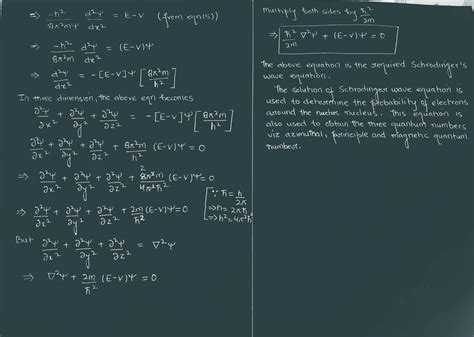 ⇒ -ħ²/8π²mψ d²ψ/dx² = E-V (from eqn(5))
⇒ -h²/8π²m d²ψ/dx² = (E-V)ψ
⇒ d²ψ/dx² = -[E-V]ψ [8π²m/h²]
In three dimension, the above eqn becomes
∂²ψ/∂x² + ∂²ψ/∂y² + ∂²ψ/∂z² = -[E-V]ψ [8π²m/h²]
∂²ψ/∂x² + ∂²ψ/∂y² + ∂²ψ/∂z² + 8π²m/h² (E-V)ψ=0
⇒ ∂²ψ/∂x² + ∂²ψ/∂y² + ∂²ψ/∂z² + 8π²m/4π²ħ² (E-V)ψ=0
⇒ ∂²ψ/∂x² + ∂²ψ/∂y² + ∂²ψ/∂z² + 2m/ħ² (E-V)ψ=0
[∵ ħ = h/2π
⇒h = 2πħ
⇒h²=4π²ħ²]
But ∂²ψ/∂x² + ∂²ψ/∂y² + ∂²ψ/∂z² = ∇²ψ
⇒ ∇²ψ + 2m/ħ² (E-V)ψ =0
Multiply both sides by ħ²/2m
⇒ ħ²/2m ∇²ψ + (E-V)ψ =0
The above equation is the required Schrodinger's
wave equation.
The solution of Schrodinger wave equation is
used to determine the probability of electrons
around the nucleus. This equation is
also used to obtain the three quantum numbers
viz azimuthal, principle and magnetic quantum
number.